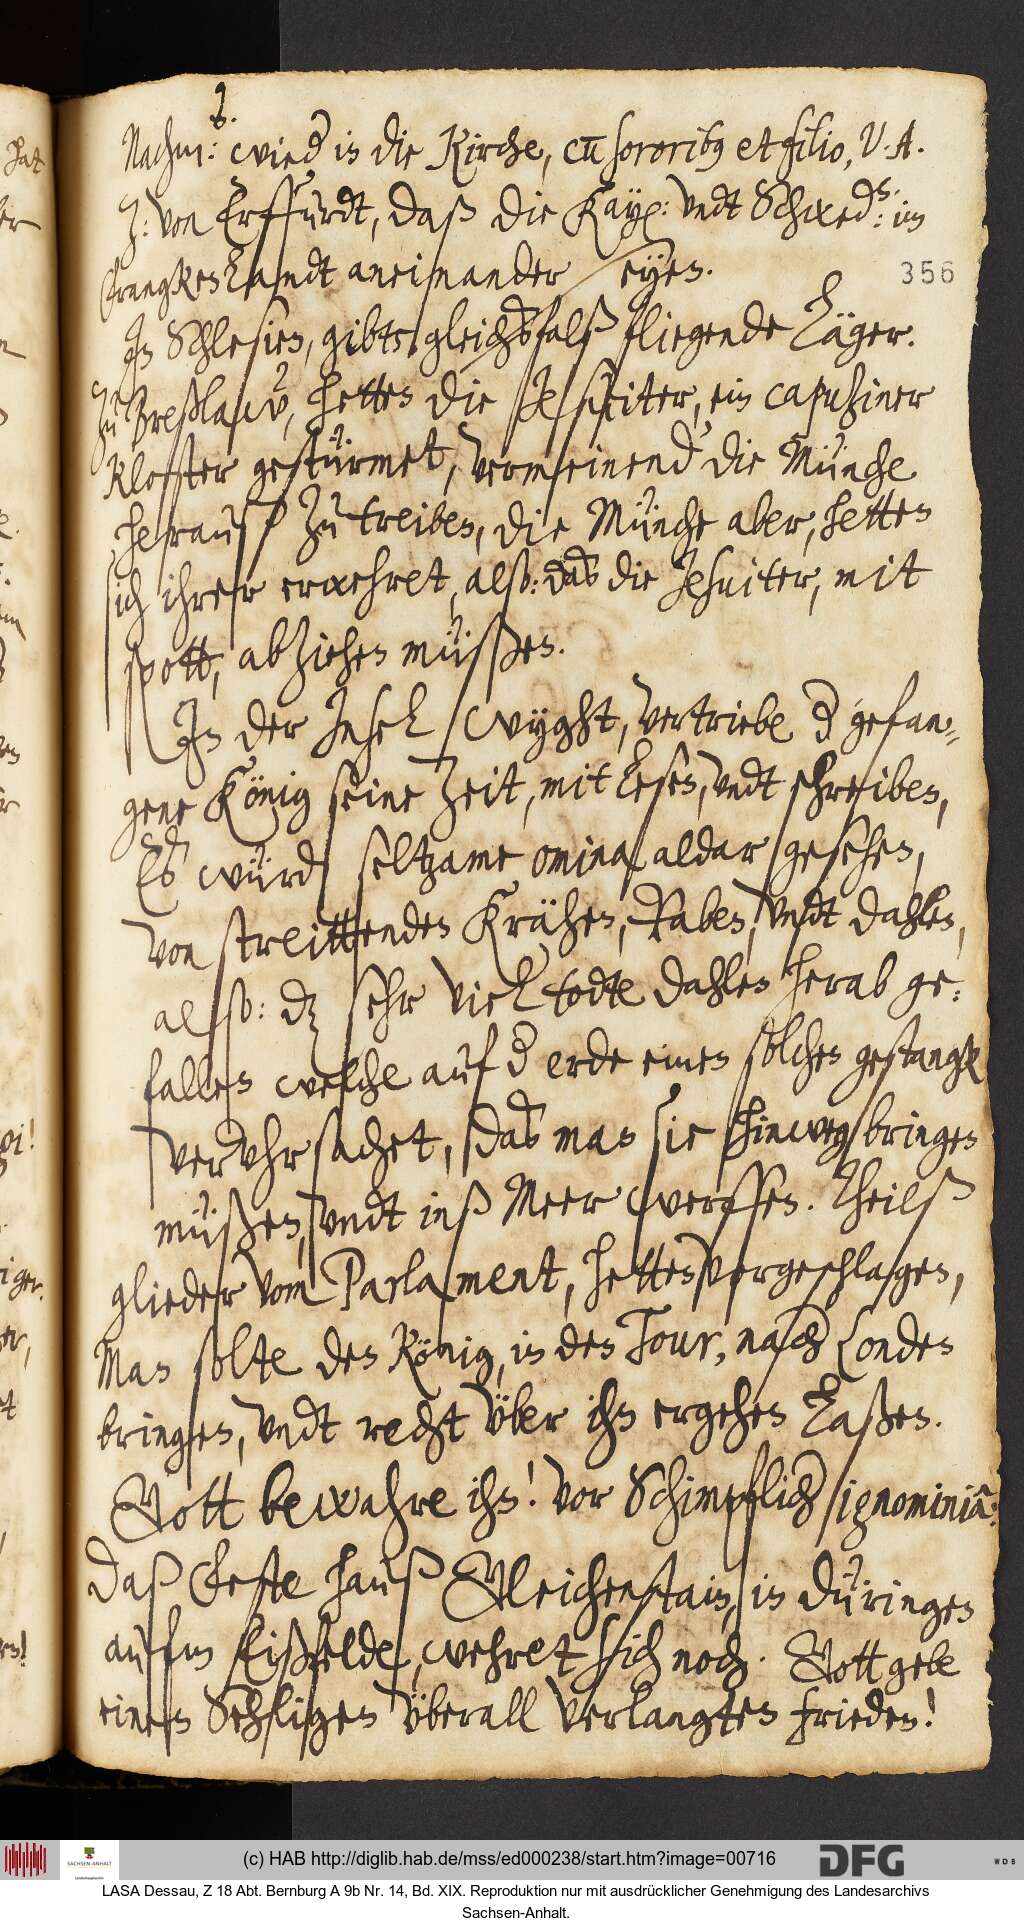 Nachm: wied in die Kirche, cū sororib9 et filio, V. A.
Z: von Erffurdt, daß die Kayß: vndt Schwed: im
Frangkenlandt aneinander seyen.
356
In Schlesien, gibts gleichsfalß fliegende Läger.
Zu Breßlaw, hetten die Jesuiter, ein capuziner
kloster gestürmet, vermeinend die Münche
herauß zu treiben, die Münche aber, hetten
sich ihrer erwehret, also: das die Jesuiter, mit
spott, abziehen müßen.
In der Insel Wyght, vertriebe d gefan-
gene König seine Zeit, mit lesen, vndt schreiben,
Es würden seltzame omina aldar gesehen,
von streittenden Krähen, Raben, vndt dahlen,
also: dz sehr viel todte dahlen herab ge-
fallen welche auf d erde einen solchen gestangk
vervhrsachet, das man sie hinweg bringen
müßen, vndt inß Meer werffen. Theilß
glieder vom Parlament, hetten vorgeschlagen,
Man solte den König, in den Tour, nach Londen
bringen, vndt recht vber ihn ergehen laßen.
Gott bewahre ihn! vor Schimpflich ignominiâ:
Daß Feste hauß Gleichenstain, in Düringen
aufm Eißfelde, wehret sich noch. Gott gebe
einen Sehligen vberall verlangten frieden!
(c) HAB http://diglib.hab.de/mss/ed000238/start.htm?image=00716
DFG
SACHSEN-ANHALT
WDB
LASA Dessau, Z 18 Abt. Bernburg A 9b Nr. 14, Bd. XIX. Reproduktion nur mit ausdrücklicher Genehmigung des Landesarchivs
Sachsen-Anhalt.